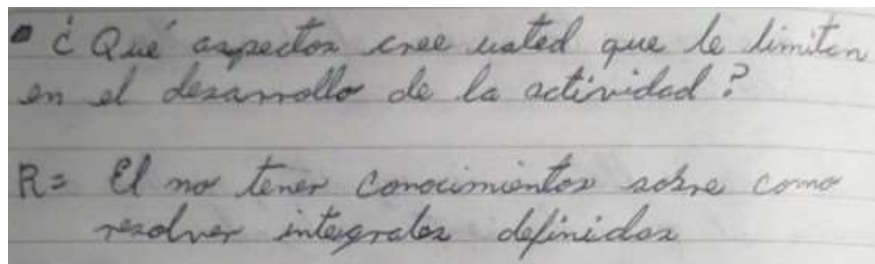 • ¿Qué aspectos cree usted que le limitan
en el desarrollo de la actividad?
R= El no tener conocimientos sobre como
resolver integrales definidas